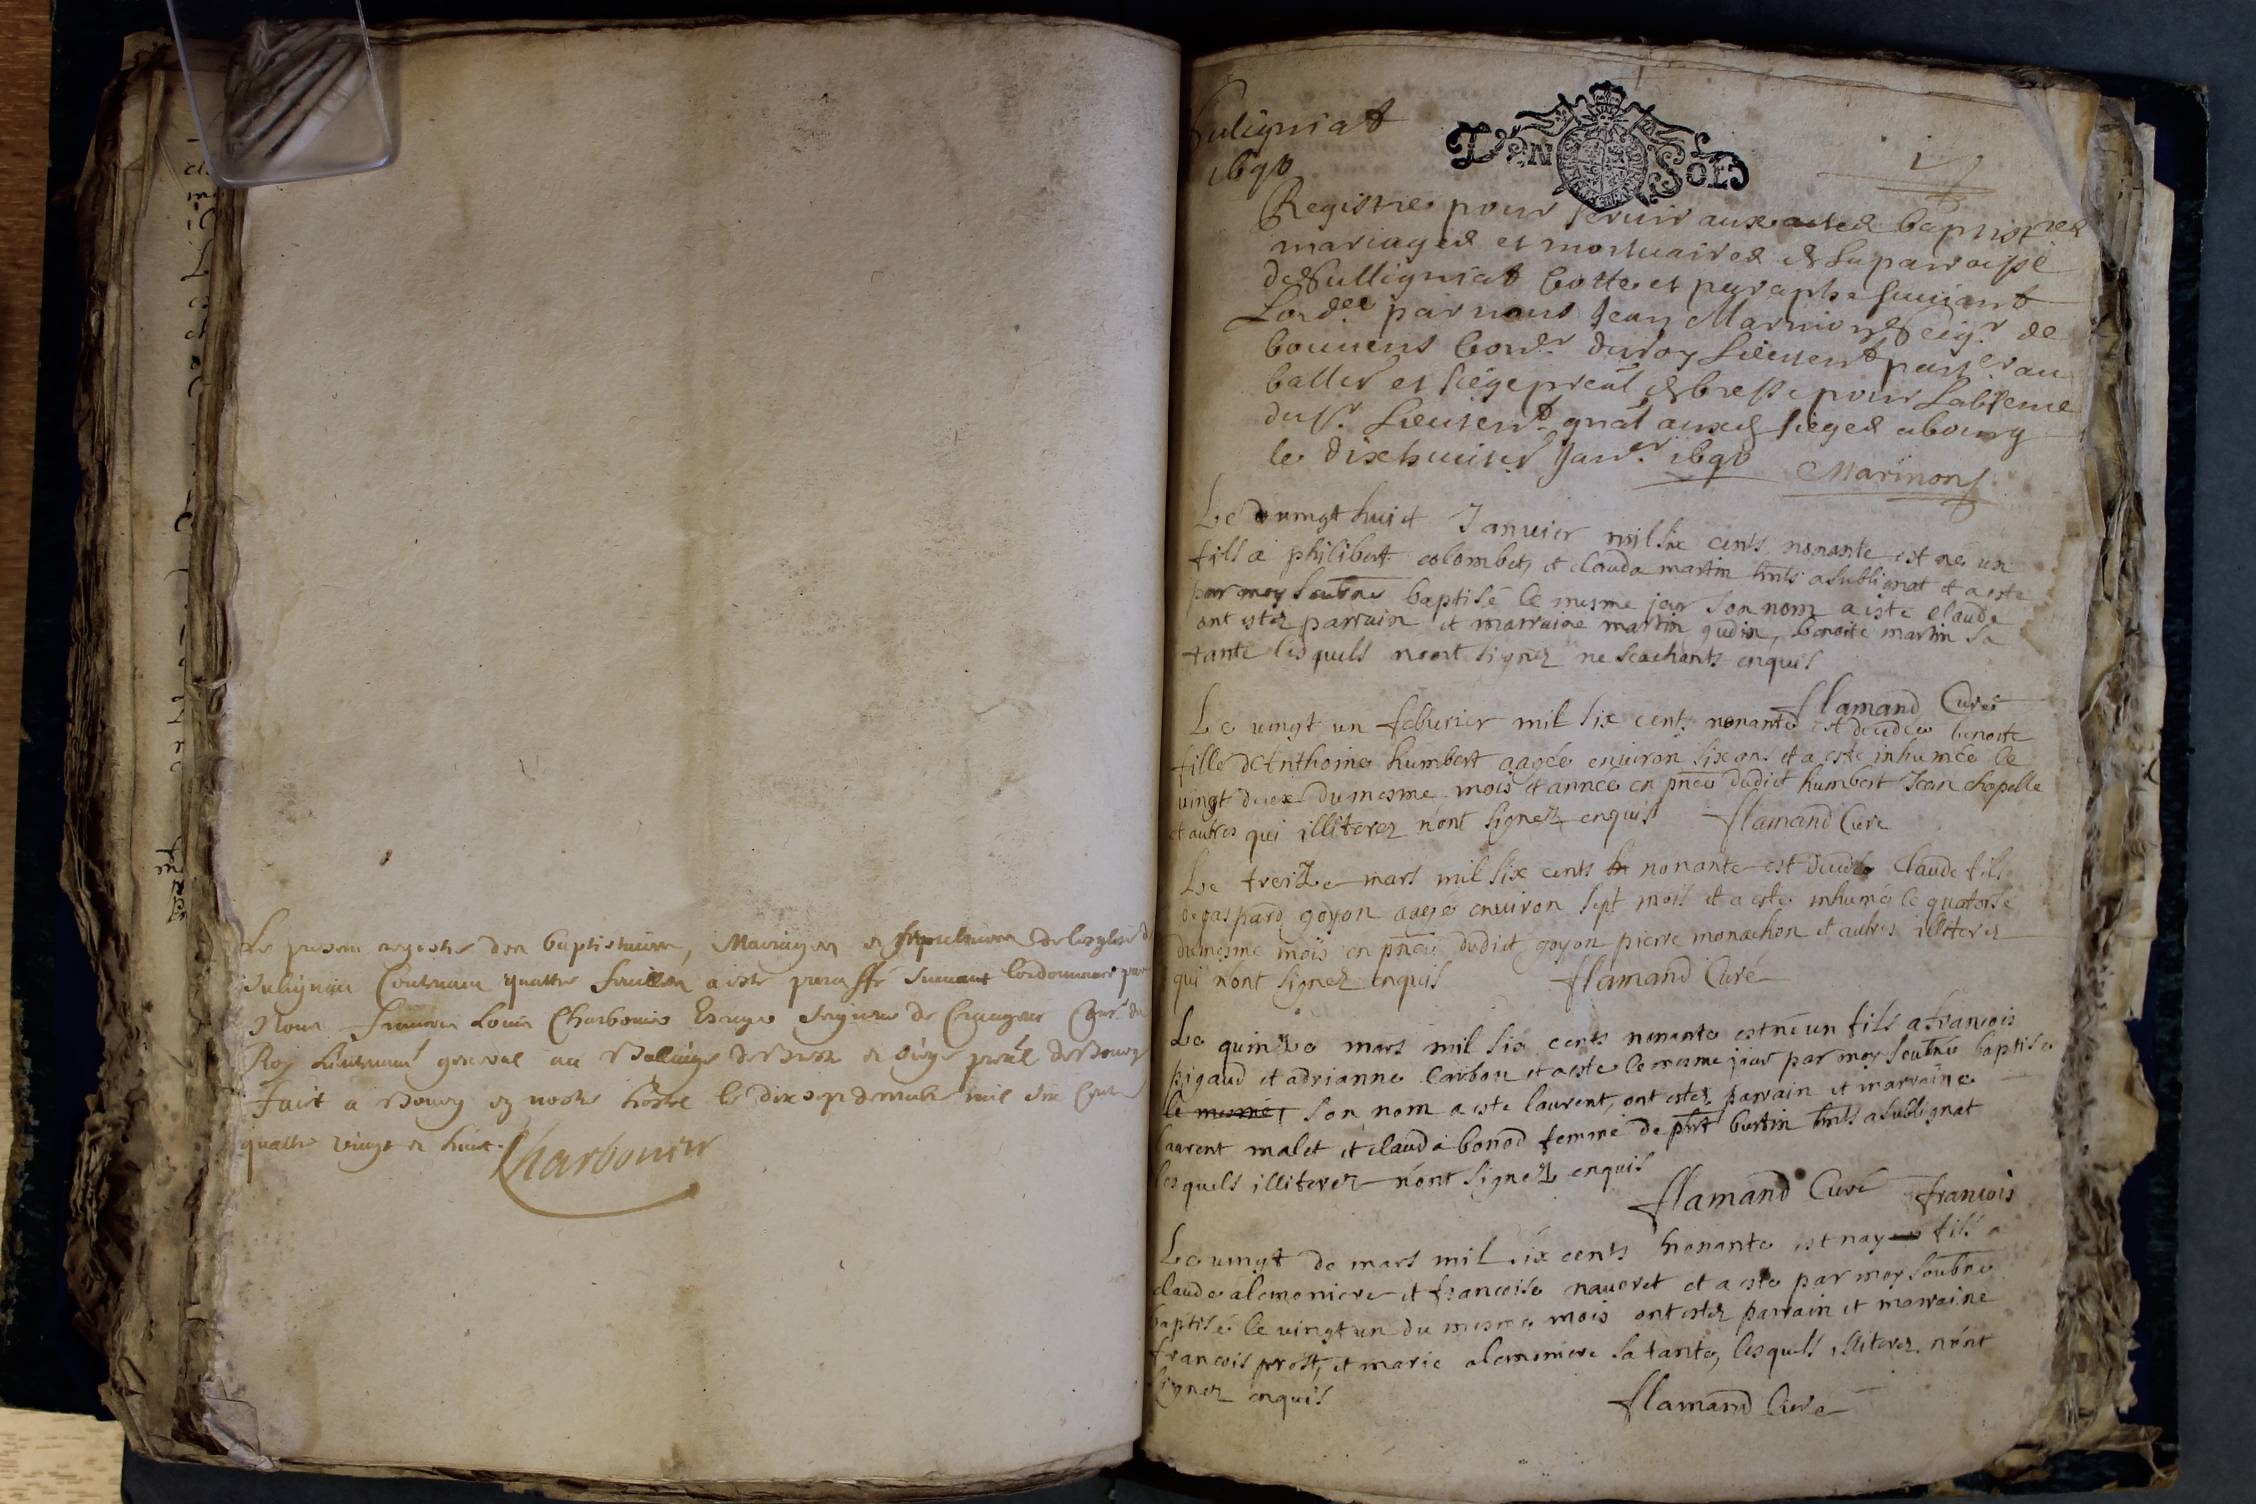 Le present registre des baptistaires, Mariages et sepultures de lesglise de
Sulignia Contenant quattre feuilles a esté paraffé suivant lordonnance par
Nous francois Louis Charbonier Escuyer seigneur de Crangeac Conser. du
Roy Lieutenant general au Balliage de Bresse et siege pre'al de Bourg
Fait a Bourg en nostre hostel le dix sept mil six Cent
quattre vingt et huict. Charbonier
Suligniat
1690
DEN SOLS
1
Registre pour servir aux actes baptistres
mariages et mortuaires de la parroisse
de Sulligniat Cotte et paraphe suivant
Lord.ce par nous Jean Marinon Seig.r de
bouuens Con.er du roy Lieuten.t part.er au
balle et siege pre'al de bresse pour Labsence
du sr. Lieuten.t gn'al auxd sieges a bourg
le dixhuict Janv.er 1690 Marinon
Le vingt huict Janvier mil six cents nonante est né un
fils a philibert colombet, et clauda martin h'nts a sublignat et a este
par moy soubné baptisé le mesme jour son nom a este claude
ont estez parrain et marraine martin gudin, benoite martin sa
tante lesquels n'ont signez ne scachants enquis
flamand Curé
Le vingt un feburier mil six cent nonante est decedée benoite
fille d'Anthoine humbert aagée environ six ans et a esté inhumée le
vingt deux du mesme mois et année en pnce dudict humbert Jean chapelle
et autres qui illiterez n'ont signez enquis flamand Curé
Le treize mars mil six cents nonante est decedé Claude fils
de gaspard goyon aagé environ sept mois et a este inhumé le quatorse
du mesme mois en pnce dudict goyon pierre monachon et autres illiterez
qui n'ont signez enquis flamand Curé
Le quinze mars mil six cents nonante est né un fils a francois
pigaud et adrianne Carbon et a este le mesme jour par moy soubné baptisé
le mesme, son nom a este laurent, ont estez parrain et marraine
laurent malet et clauda bonod femme de ph'rt burtin h'nts a sublignat
lesquels illiterez n'ont signez enquis
flamand Curé francois
Le vingt de mars mil six cents nonante est nay fils a
claude alemoniere et francoise naveret et a este par moy soubné
baptisé le vingt un du mesme mois ont estez parrain et marraine
francois prost, et marie alemoniere sa tante, lesquels illiterez n'ont
signez enquis
flamand Curé